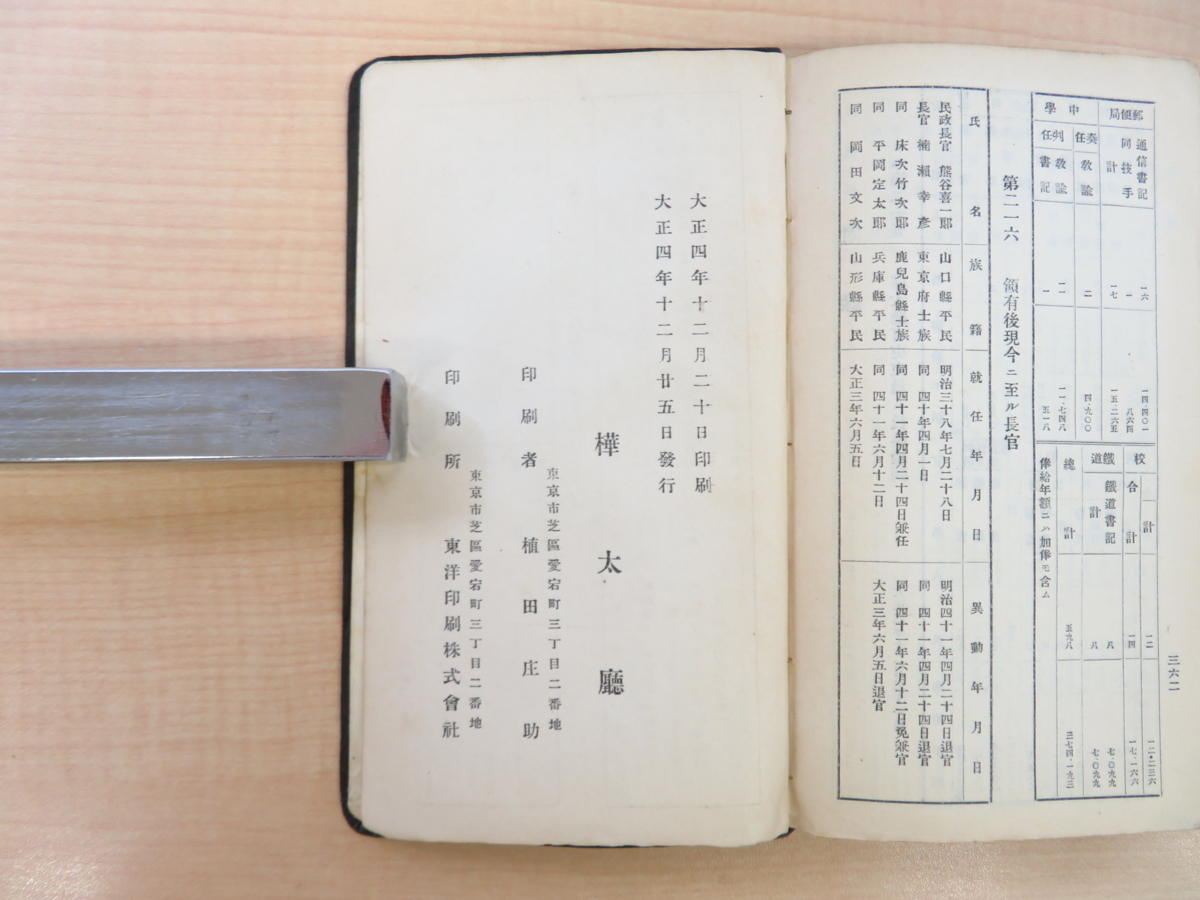 三六二
郵便局
通信書記
一六
一四・四〇一
同技手
一
八六四
計
一七
一五・二六五
中學
奏任
教諭
二
四・九〇〇
判任
教諭
一一
一一・七四八
書記
一
五一八
校
計
一二
一二・二三六
合計
一四
一七・一六六
鐵道
鐵道書記
八
七・〇九九
計
八
七・〇九九
總計
五九八
三七四・一九三
俸給年額ニハ加俸モ含ム
第二一六 領有後現今ニ至ル長官
氏名 族籍 就任年月日 異動年月日
民政長官 熊谷喜一郎 山口縣平民 明治三十八年七月二十八日 明治四十一年四月二十四日退官
長官 楠瀬幸彦 東京府士族 同 四十年四月一日 同 四十一年四月二十四日退官
同 床次竹次郎 鹿兒島縣士族 同 四十一年四月二十四日兼任 同 四十一年六月十二日免兼官
同 平岡定太郎 兵庫縣平民 同 四十一年六月十二日 大正三年六月五日退官
同 岡田文次 山形縣平民 大正三年六月五日
大正四年十二月二十日印刷
大正四年十二月廿五日發行
樺太廳
東京市芝區愛宕町三丁目二番地
印刷者 植田庄助
東京市芝區愛宕町三丁目二番地
印刷所 東洋印刷株式會社